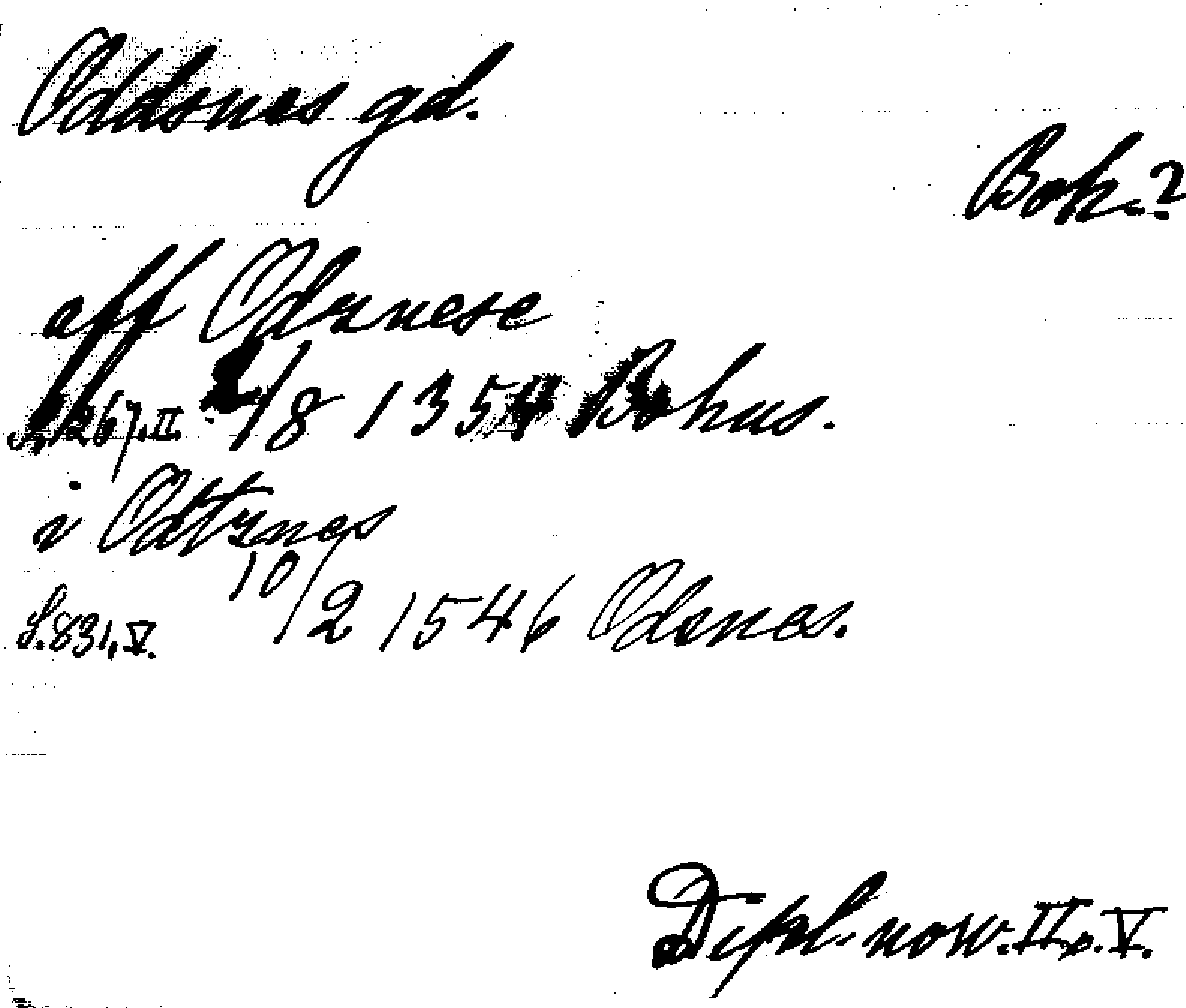 Oddsnes gd.
Boh.?
aff Odznese
S. 267. II. /8 1354 Bohus.
i Odtznes
S. 831, V. 10/2 1546 Odsnes.
Dipl. norv. II o. V.